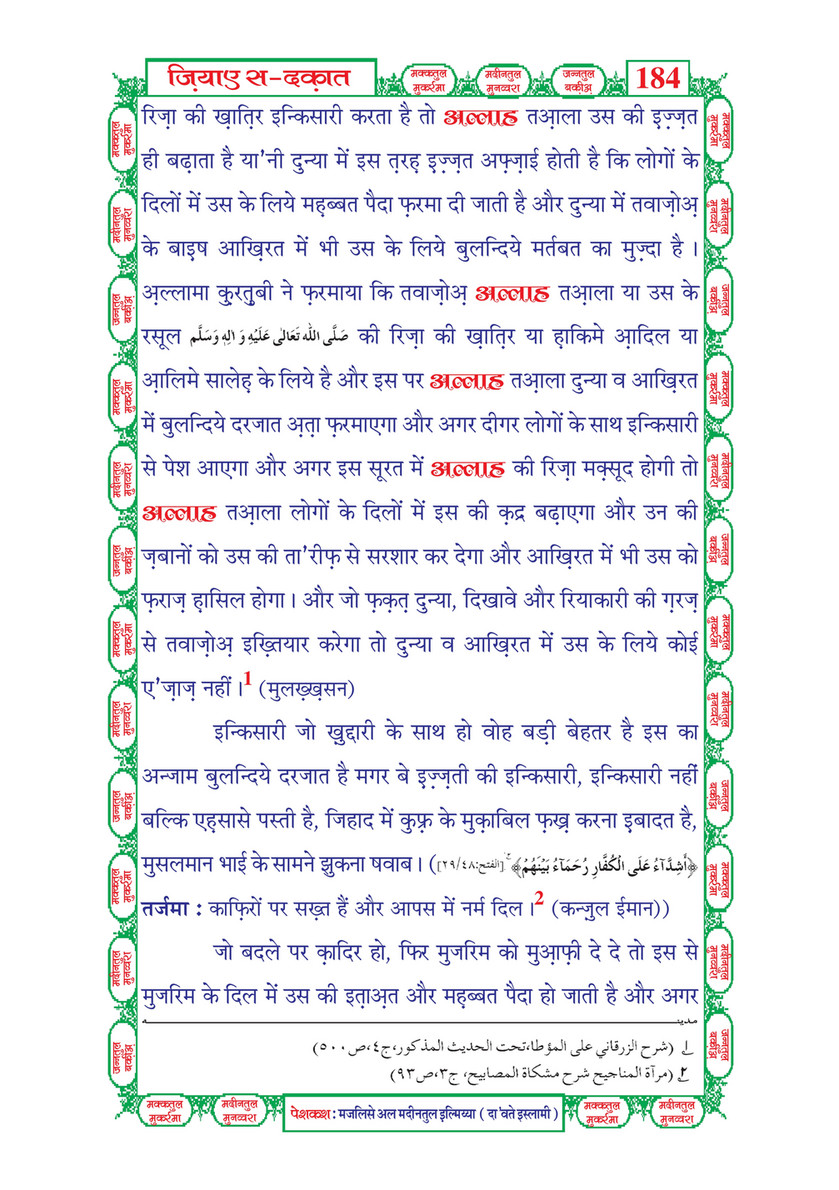 ज़ियाए स-दक़ात
मक्कतुल मुकर्रमा
मदीनतुल मुनव्वरा
जन्नतुल बक़ीअ़
184
रिज़ा की ख़ात़िर इन्किसारी करता है तो अल्लाह तआ़ला उस की इ़ज़्ज़त
ही बढ़ाता है या'नी दुन्या में इस त़रह़ इ़ज़्ज़त अफ़्ज़ाई होती है कि लोगों के
दिलों में उस के लिये मह़ब्बत पैदा फ़रमा दी जाती है और दुन्या में तवाज़ोअ़
के बाइ़ष आख़िरत में भी उस के लिये बुलन्दिये मर्तबत का मुज़्दा है ।
अ़ल्लामा क़ुरत़ुबी ने फ़रमाया कि तवाज़ोअ़ अल्लाह तआ़ला या उस के
रसूल صَلَّى اللّٰه تَعَالٰى عَلَيْهِ وَ اٰلِهٖ وَسَلَّم की रिज़ा की ख़ात़िर या ह़ाकिमे आ़दिल या
आ़लिमे सालेह़ के लिये है और इस पर अल्लाह तआ़ला दुन्या व आख़िरत
में बुलन्दिये दरजात अ़त़ा फ़रमाएगा और अगर दीगर लोगों के साथ इन्किसारी
से पेश आएगा और अगर इस सूरत में अल्लाह की रिज़ा मक़्सूद होगी तो
अल्लाह तआ़ला लोगों के दिलों में इस की क़द्र बढ़ाएगा और उन की
ज़बानों को उस की ता'रीफ़ से सरशार कर देगा और आख़िरत में भी उस को
फ़राज़ ह़ासिल होगा । और जो फ़क़त़ दुन्या, दिखावे और रियाकारी की ग़रज़
से तवाज़ोअ़ इख़्तियार करेगा तो दुन्या व आख़िरत में उस के लिये कोई
ए'ज़ाज़ नहीं ।1 (मुलख़्ख़सन)
इन्किसारी जो ख़ुद्दारी के साथ हो वोह बड़ी बेहतर है इस का
अन्जाम बुलन्दिये दरजात है मगर बे इ़ज़्ज़ती की इन्किसारी, इन्किसारी नहीं
बल्कि एह़सासे पस्ती है, जिहाद में कुफ़्र के मुक़ाबिल फ़ख़्र करना इ़बादत है,
मुसलमान भाई के सामने झुकना षवाब । (﴿أَشِدَّآءُ عَلَى الْكُفَّارِ رُحَمَآءُ بَيْنَهُمْ﴾ [الفتح:٢٩/٤٨]
तर्जमा : काफ़िरों पर सख़्त हैं और आपस में नर्म दिल ।2 (कन्ज़ुल ईमान))
जो बदले पर क़ादिर हो, फिर मुजरिम को मुआ़फ़ी दे दे तो इस से
मुजरिम के दिल में उस की इत़ाअ़त और मह़ब्बत पैदा हो जाती है और अगर
مدینه
1 (شرح الزرقاني على المؤطا،تحت الحديث المذكور،ج٤،ص٥٠٠)
٢ (مرآة المناجيح شرح مشكاة المصابيح، ج٣،ص٩٣)
मक्कतुल मुकर्रमा
मदीनतुल मुनव्वरा
पेशकश : मजलिसे अल मदीनतुल इ़ल्मिय्या ( दा 'वते इस्लामी )
मक्कतुल मुकर्रमा
मदीनतुल मुनव्वरा